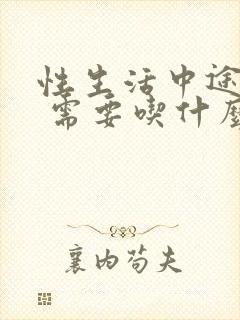 性生活中途
需要喫什麼
襄内苟夫